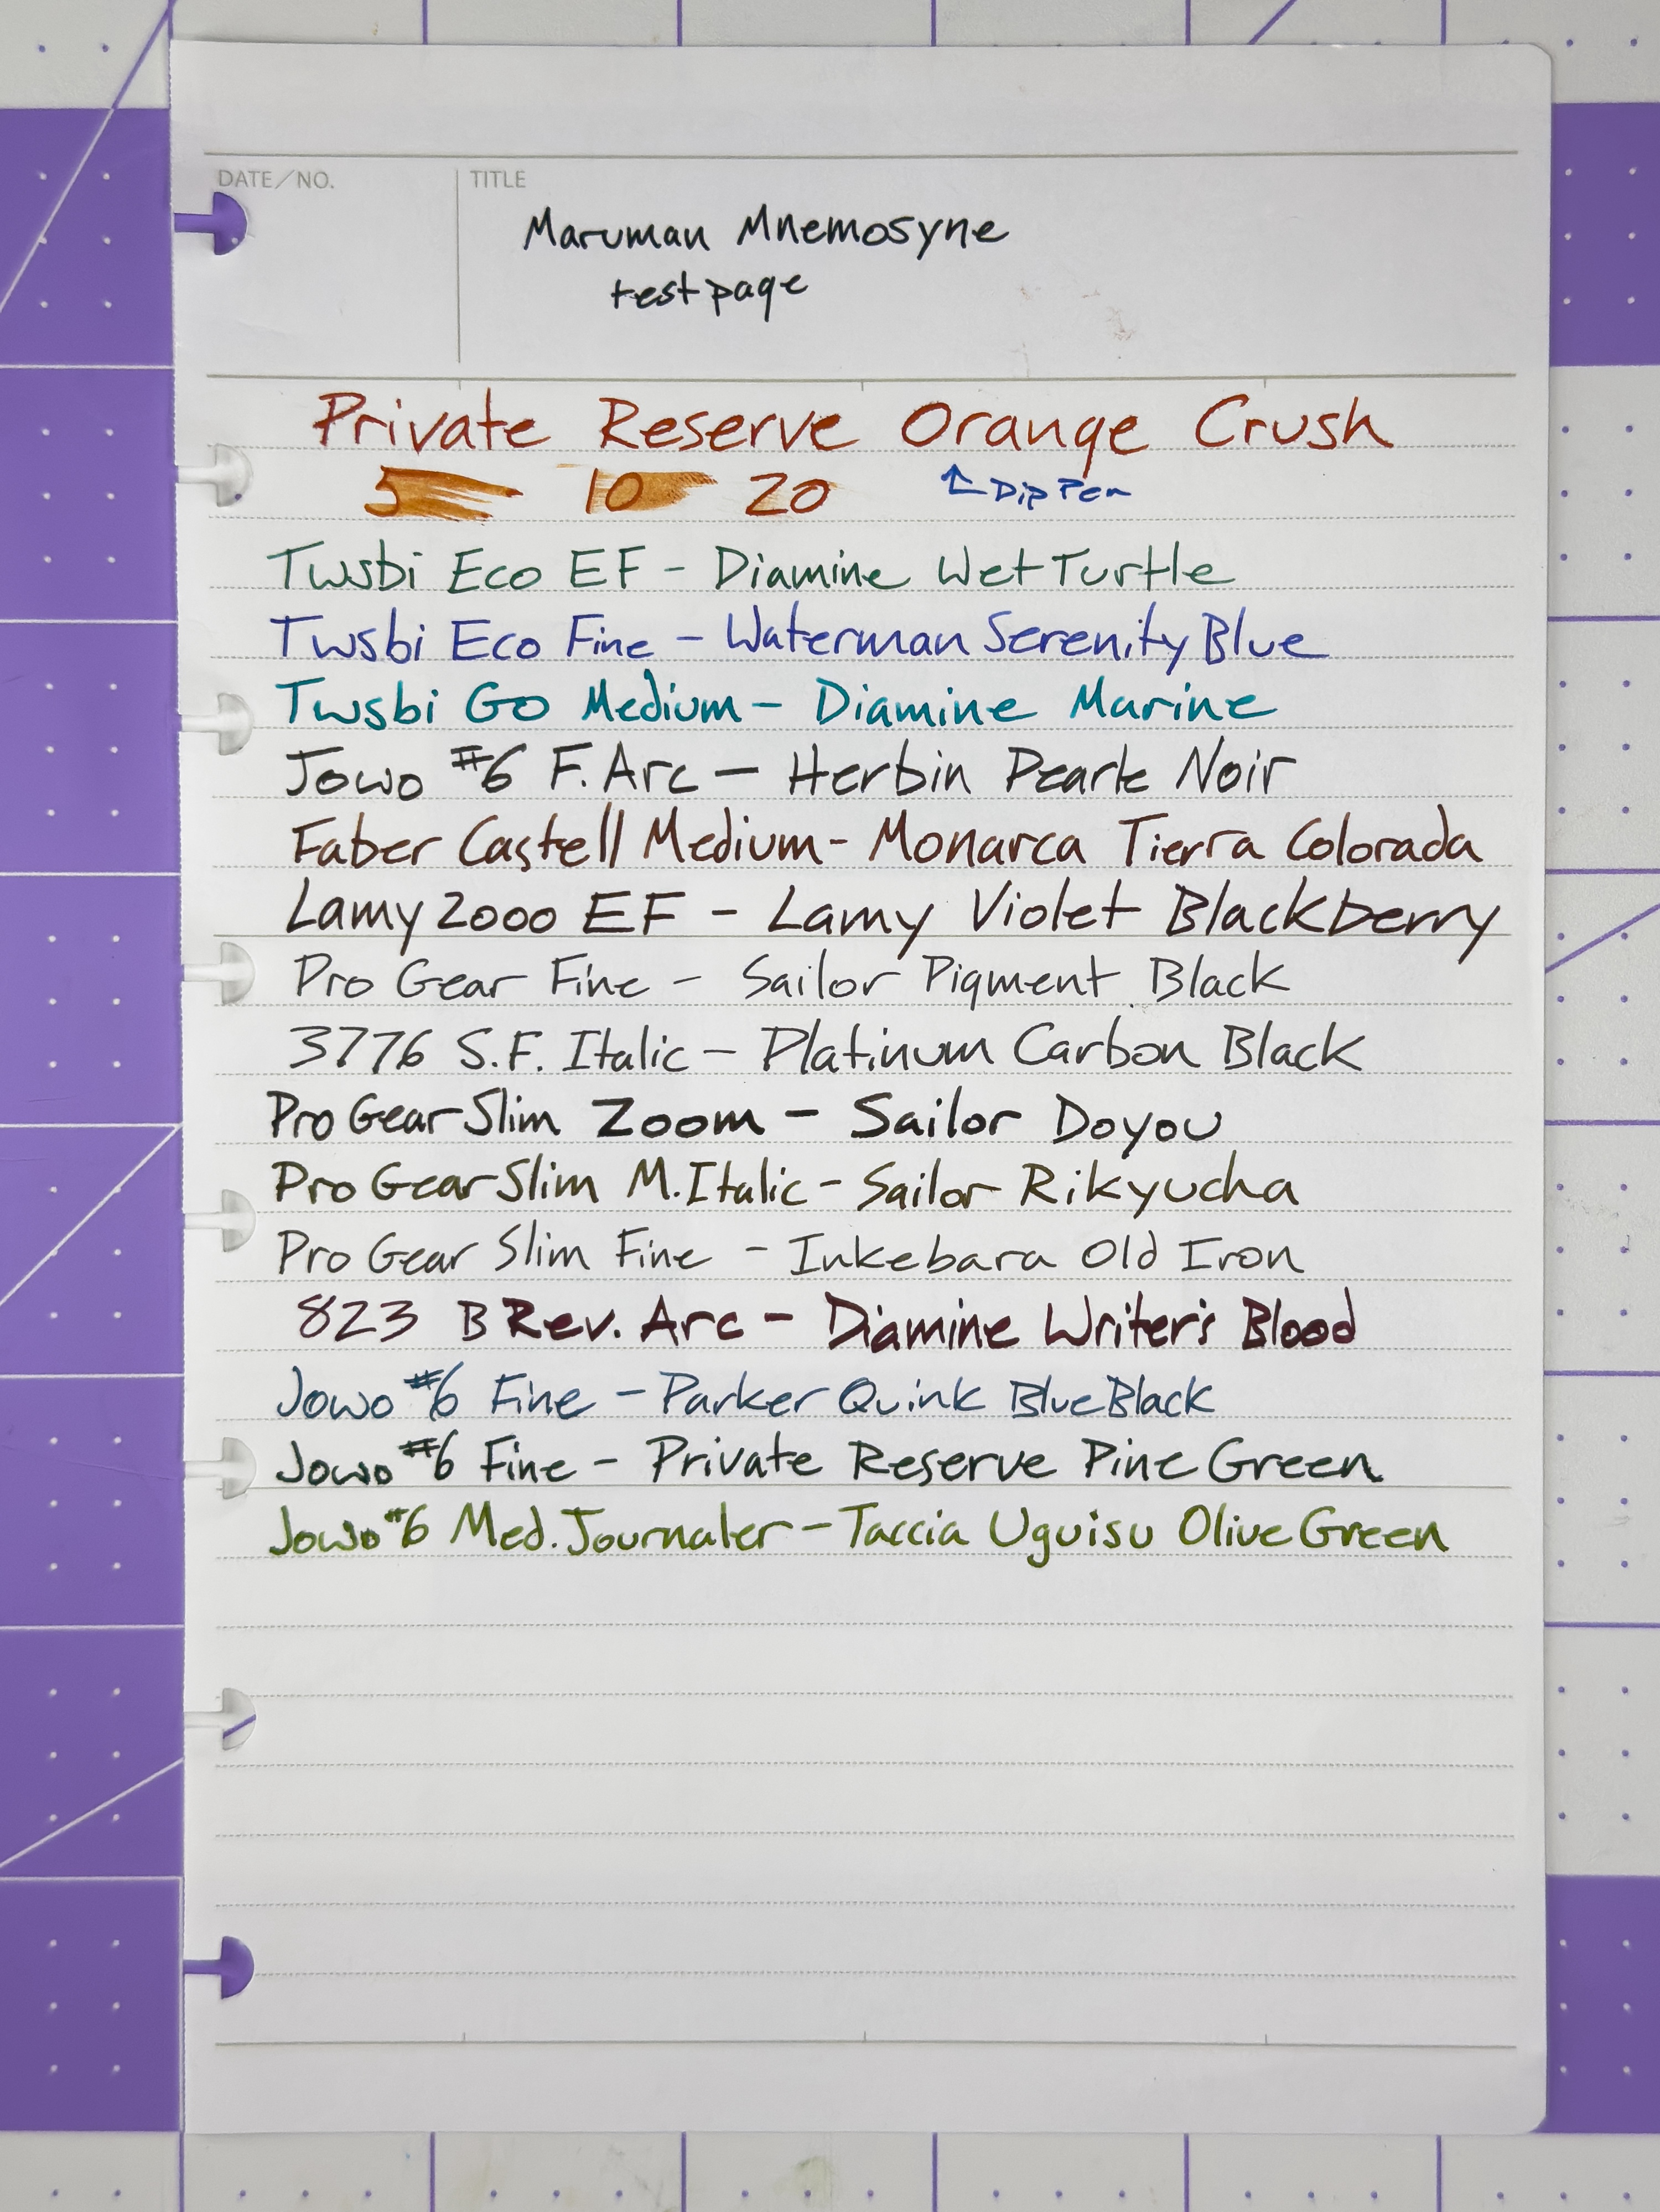 DATE/NO. TITLE
Maruman Mnemosyne
test page
Private Reserve Orange Crush
5 10 20 ↑Dip Pen
Twsbi Eco EF - Diamine Wet Turtle
Twsbi Eco Fine - Waterman Serenity Blue
Twsbi Go Medium - Diamine Marine
Jowo #6 F. Arc - Herbin Pearle Noir
Faber Castell Medium - Monarca Tierra Colorada
Lamy 2000 EF - Lamy Violet Blackberry
Pro Gear Fine - Sailor Pigment Black
3776 S.F. Italic - Platinum Carbon Black
Pro Gear Slim Zoom - Sailor Doyou
Pro Gear Slim M. Italic - Sailor Rikyucha
Pro Gear Slim Fine - Inkebara Old Iron
823 B Rev. Arc - Diamine Writer's Blood
Jowo #6 Fine - Parker Quink Blue Black
Jowo #6 Fine - Private Reserve Pine Green
Jowo #6 Med. Journaler - Taccia Uguisu Olive Green